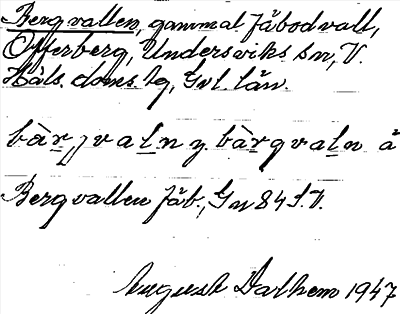 Bergvallen, gammal fäbodvall,
Offerberg, Undersviks sn, V.
Häls. doms. lg, Gvl. län.
bàrjvaln y. bàrgvaln å
Bergvallen fäb., Gn 84 S.V.
August Dalhem 1947